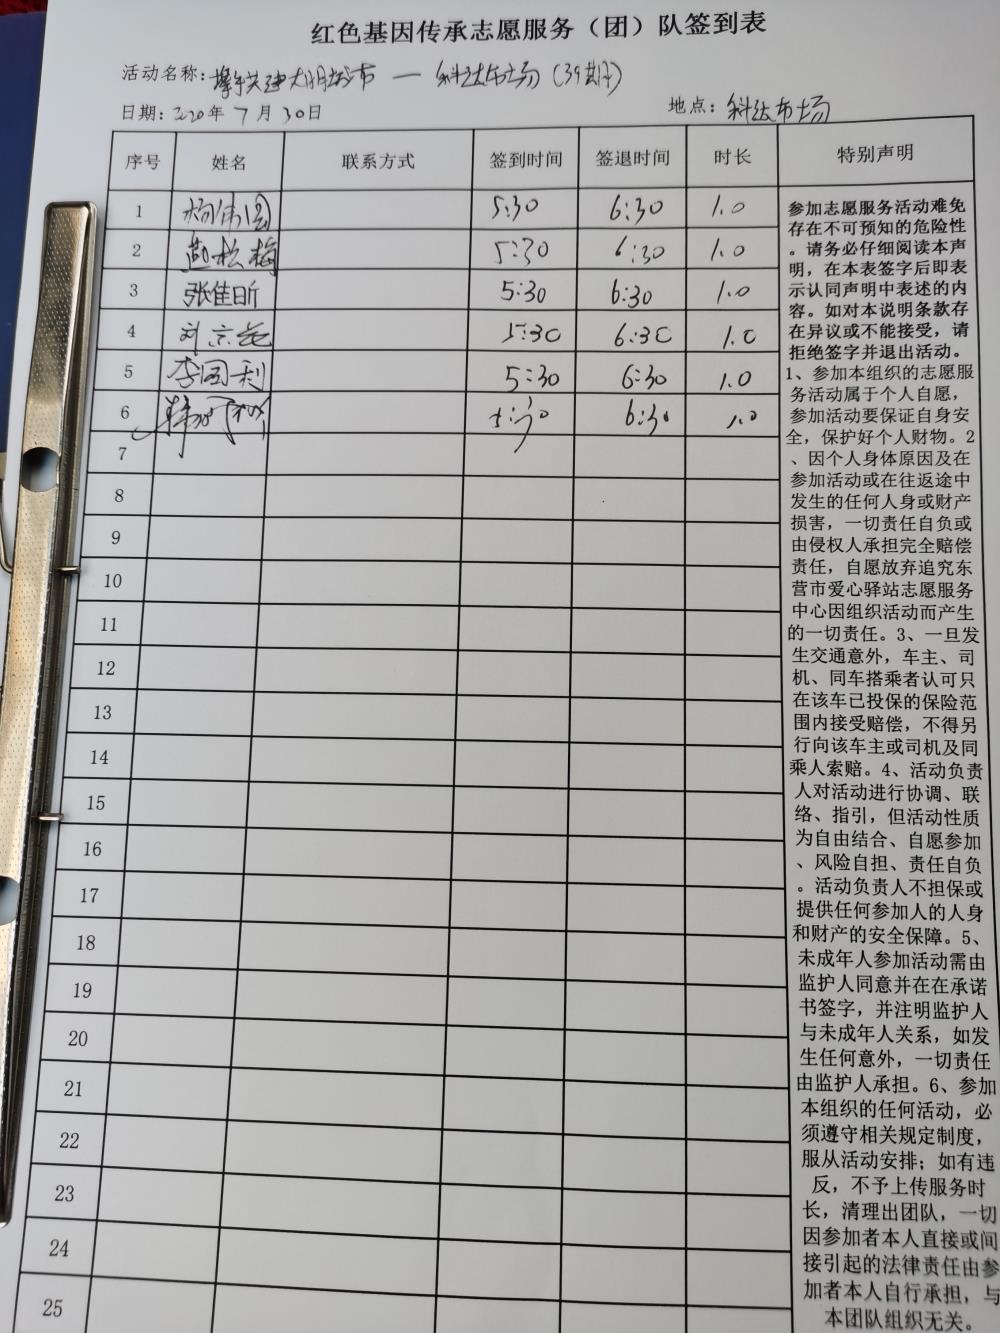 红色基因传承志愿服务（团）队签到表
活动名称：携手共建文明城市 — 科达市场（39期）
日期：2020年 7 月 30日 地点：科达市场
序号 姓名 联系方式 签到时间 签退时间 时长 特别声明
1 杨伟国 5:30 6:30 1.0
2 赵松梅 5:30 6:30 1.0
3 张佳昕 5:30 6:30 1.0
4 刘京花 5:30 6:30 1.0
5 李国利 5:30 6:30 1.0
6 5:30 6:30 1.0
7
8
9
10
11
12
13
14
15
16
17
18
19
20
21
22
23
24
25
参加志愿服务活动难免
存在不可预知的危险性
。请务必仔细阅读本声
明，在本表签字后即表
示认同声明中表述的内
容。如对本说明条款存
在异议或不能接受，请
拒绝签字并退出活动。
1、参加本组织的志愿服
务活动属于个人自愿，
参加活动要保证自身安
全，保护好个人财物。2
、因个人身体原因及在
参加活动或在往返途中
发生的任何人身或财产
损害，一切责任自负或
由侵权人承担完全赔偿
责任，自愿放弃追究东
营市爱心驿站志愿服务
中心因组织活动而产生
的一切责任。3、一旦发
生交通意外，车主、司
机、同车搭乘者认可只
在该车已投保的保险范
围内接受赔偿，不得另
行向该车主或司机及同
乘人索赔。4、活动负责
人对活动进行协调、联
络、指引，但活动性质
为自由结合、自愿参加
、风险自担、责任自负
。活动负责人不担保或
提供任何参加人的人身
和财产的安全保障。5、
未成年人参加活动需由
监护人同意并在在承诺
书签字，并注明监护人
与未成年人关系，如发
生任何意外，一切责任
由监护人承担。6、参加
本组织的任何活动，必
须遵守相关规定制度，
服从活动安排；如有违
反，不予上传服务时
长，清理出团队，一切
因参加者本人直接或间
接引起的法律责任由参
加者本人自行承担，与
本团队组织无关。